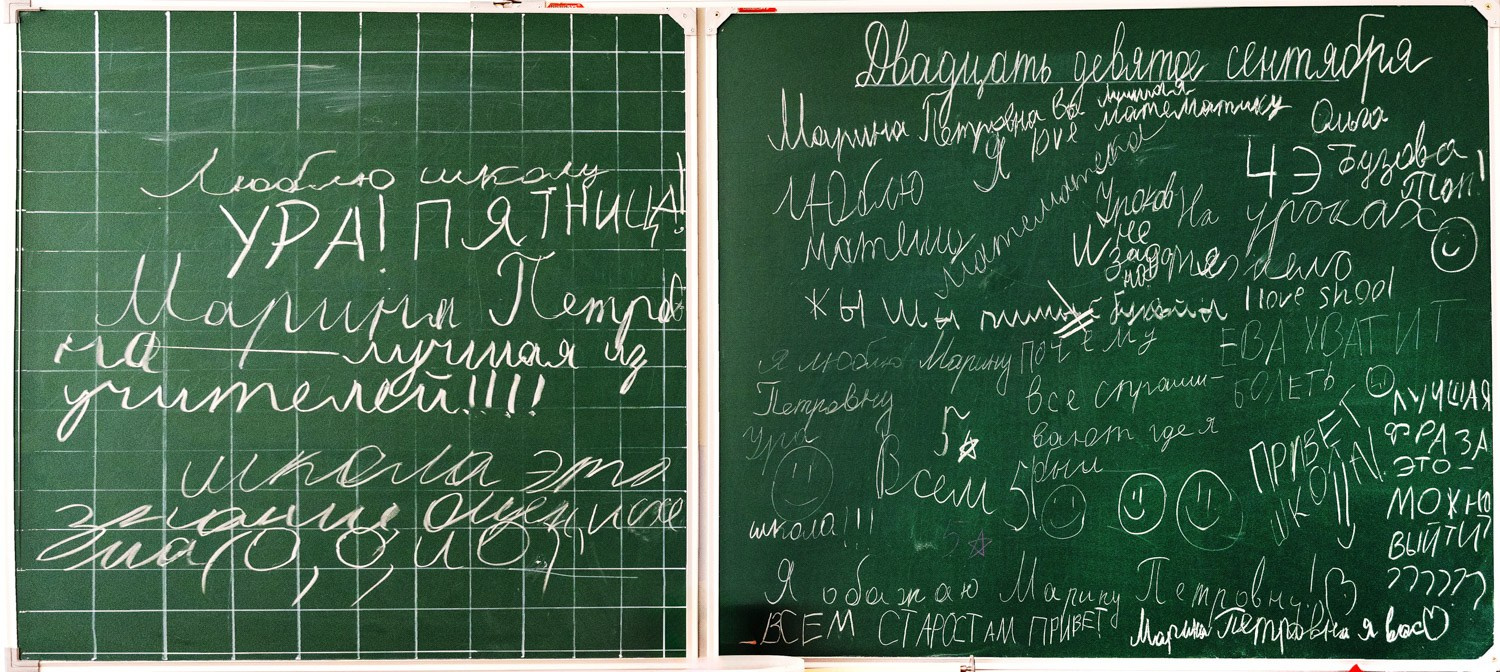 Люблю школу
УРА! ПЯТНИЦА!
Марина Петров
на — лучшая из
учителей!!!!
школа это
знания
О, О, И О,
Двадцать девятое сентября
Марина Петровна вы лучшая
Я love математику
Ольга
Бузова
Топ!
ЧЭ
Люблю
матешу
Математика
Уроков
не
задано
И
На уроках
жы шы пиши с буквой ы
I love shool
Я люблю Марину
Петровну
ура
школа!!!
почему
все спраши-
вают где я
был
ЕВА ХВАТИТ
БОЛЕТЬ
5
Всем 5
ПРИВЕТ
ШКОЛА!
ЛУЧШАЯ
ФРАЗА
ЭТО-
МОЖНО
ВЫЙТИ
??????
Я обажаю Марину Петровну!
ВСЕМ СТАРОСТАМ ПРИВЕТ
Марина Петровна я вас